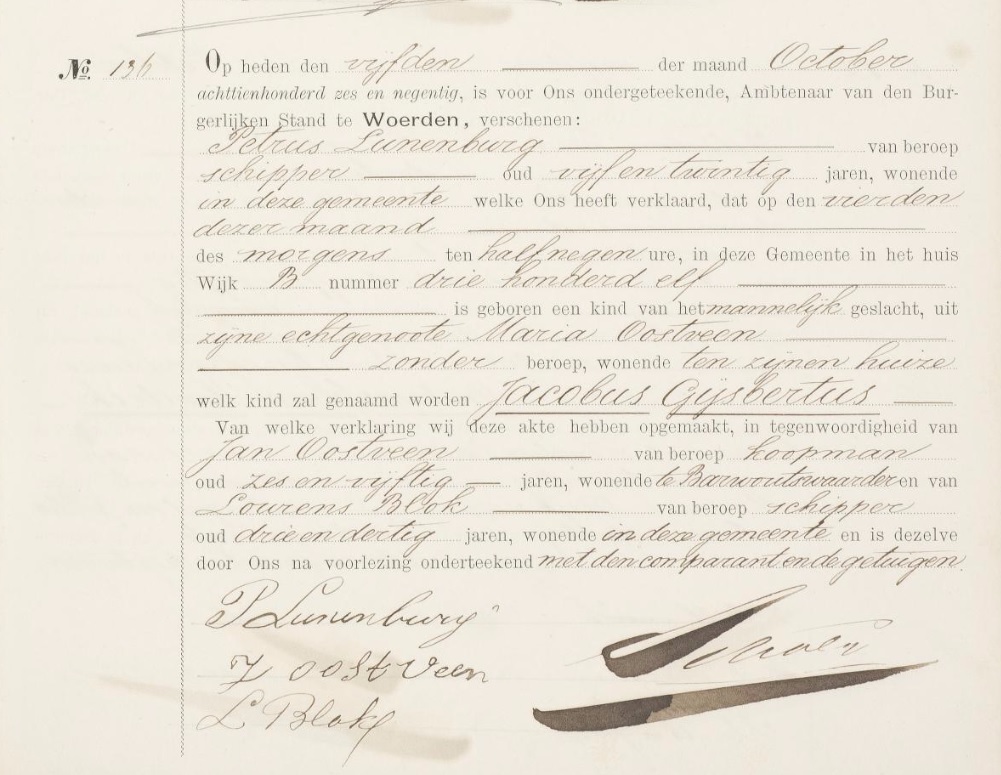 No. 136
Op heden den vijfden der maand October
achttienhonderd zes en negentig, is voor Ons ondergeteekende, Ambtenaar van den Bur-
gerlijken Stand te Woerden, verschenen:
Petrus Lunenburg van beroep
schipper oud vijf en twintig jaren, wonende
in deze gemeente welke Ons heeft verklaard, dat op den vierden
dezer maand
des morgens ten half negen ure, in deze Gemeente in het huis
Wijk B nummer drie honderd elf
is geboren een kind van het mannelijk geslacht, uit
zijne echtgenoote Maria Oostveen
zonder beroep, wonende ten zijnen huize
welk kind zal genaamd worden Jacobus Gijsbertus
Van welke verklaring wij deze akte hebben opgemaakt, in tegenwoordigheid van
Jan Oostveen van beroep koopman
oud zes en vijftig jaren, wonende te Barwoutswaarder en van
Lourens Blok van beroep schipper
oud drie en dertig jaren, wonende in deze gemeente en is dezelve
door Ons na voorlezing onderteekend met den comparant en de getuigen.
P Lunenburg
J oostveen
L Blok